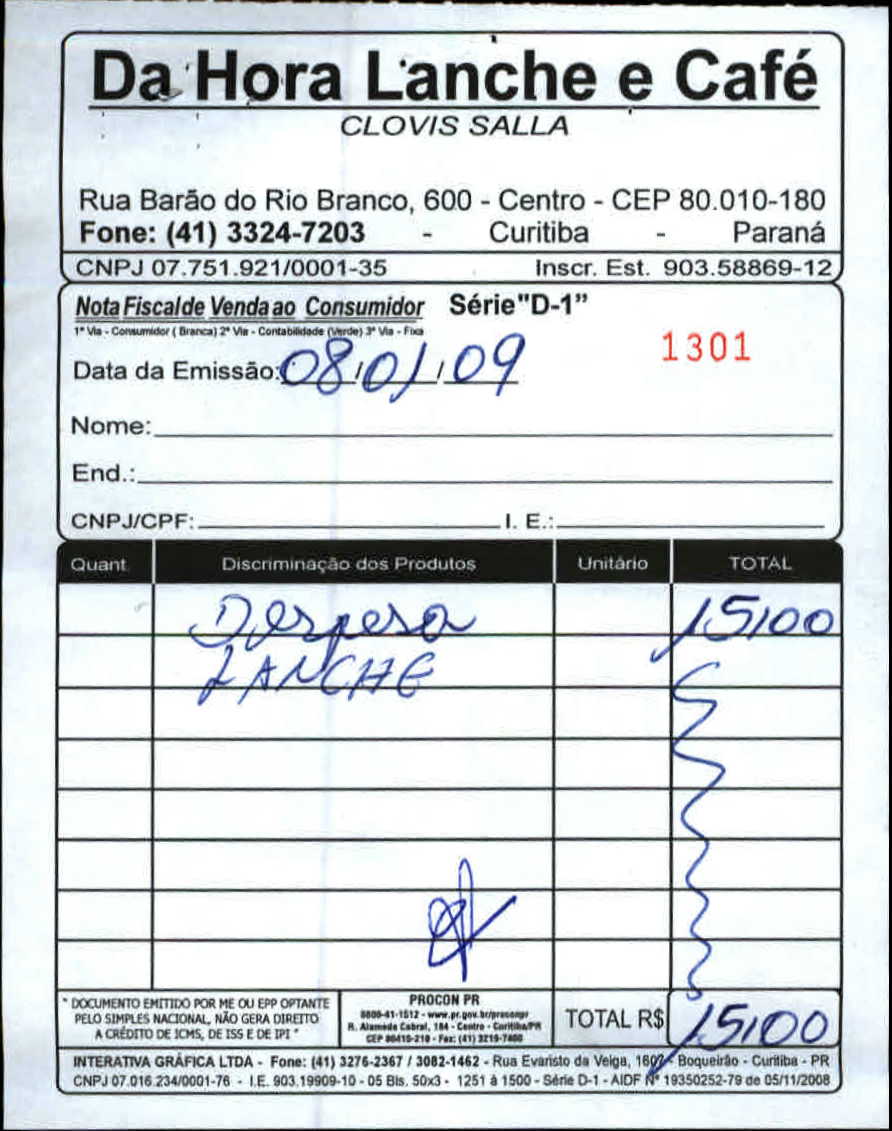 Da Hora Lanche e Café
CLOVIS SALLA
Rua Barão do Rio Branco, 600 - Centro - CEP 80.010-180
Fone: (41) 3324-7203 - Curitiba - Paraná
CNPJ 07.751.921/0001-35 Inscr. Est. 903.58869-12
Nota Fiscal de Venda ao Consumidor Série "D-1"
1ª Via - Consumidor ( Branca) 2ª Via - Contabilidade (Verde) 3ª Via - Fixa
Data da Emissão: 08/01/09 1301
Nome:
End.:
CNPJ/CPF: I. E.:
Quant. Discriminação dos Produtos Unitário TOTAL
Despesa 15,00
LANCHE
* DOCUMENTO EMITIDO POR ME OU EPP OPTANTE
PELO SIMPLES NACIONAL, NÃO GERA DIREITO
A CRÉDITO DE ICMS, DE ISS E DE IPI *
PROCON PR
0800-41-1512 - www.pr.gov.br/proconpr
R. Alameda Cabral, 184 - Centro - Curitiba/PR
CEP 80410-210 - Fax: (41) 3219-7400
TOTAL R$ 15,00
INTERATIVA GRÁFICA LTDA - Fone: (41) 3276-2367 / 3082-1462 - Rua Evaristo da Veiga, - Boqueirão - Curitiba - PR
CNPJ 07.016.234/0001-76 - I.E. 903.19909-10 - 05 Bls. 50x3 - 1251 à 1500 - Série D-1 - AIDF Nº 19350252-79 de 05/11/2008